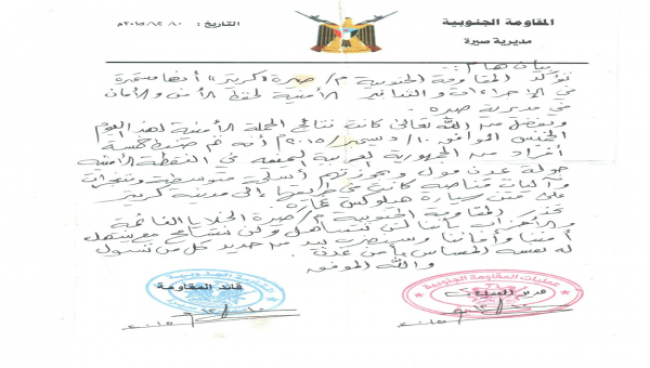 المقاومة الجنوبية
مديرية صيرة
التاريخ : ٢٠١٥/١٢/١٠م
بيان هام ..
تؤكد المقاومة الجنوبية م/ صيرة «كريتر» أنها مستمرة
في الإجراءات والتدابير الأمنية لحفظ الأمن والأمان
في مديرية صيره .
وبفضل من الله تعالى كانت نتائج الحملة الأمنية لهذا اليوم
الخميس الموافق ١٠/ ديسمبر/ ٢٠١٥م أنه تم ضبط خمسة
أفراد من الجمهورية العربية اليمنية في النقطة الأمنية
جولة عدن مول وبحوزتهم أسلحة متوسطة ومتفجرات
وآليات قناصة كانت في طريقها إلى مدينة كريتر
على متن سياره هيلوكس غماره
تحذر المقاومة الجنوبية م/ صيرة الخلايا النائمة
و بأننا لن نتساهل ولن نتسامح مع
أمننا وأماننا وسنضرب بيد من حديد كل من تسول
له نفسه المساس بأمن عدن
والله الموفق
عمليات المقاومة الجنوبية
قائد المقاومة